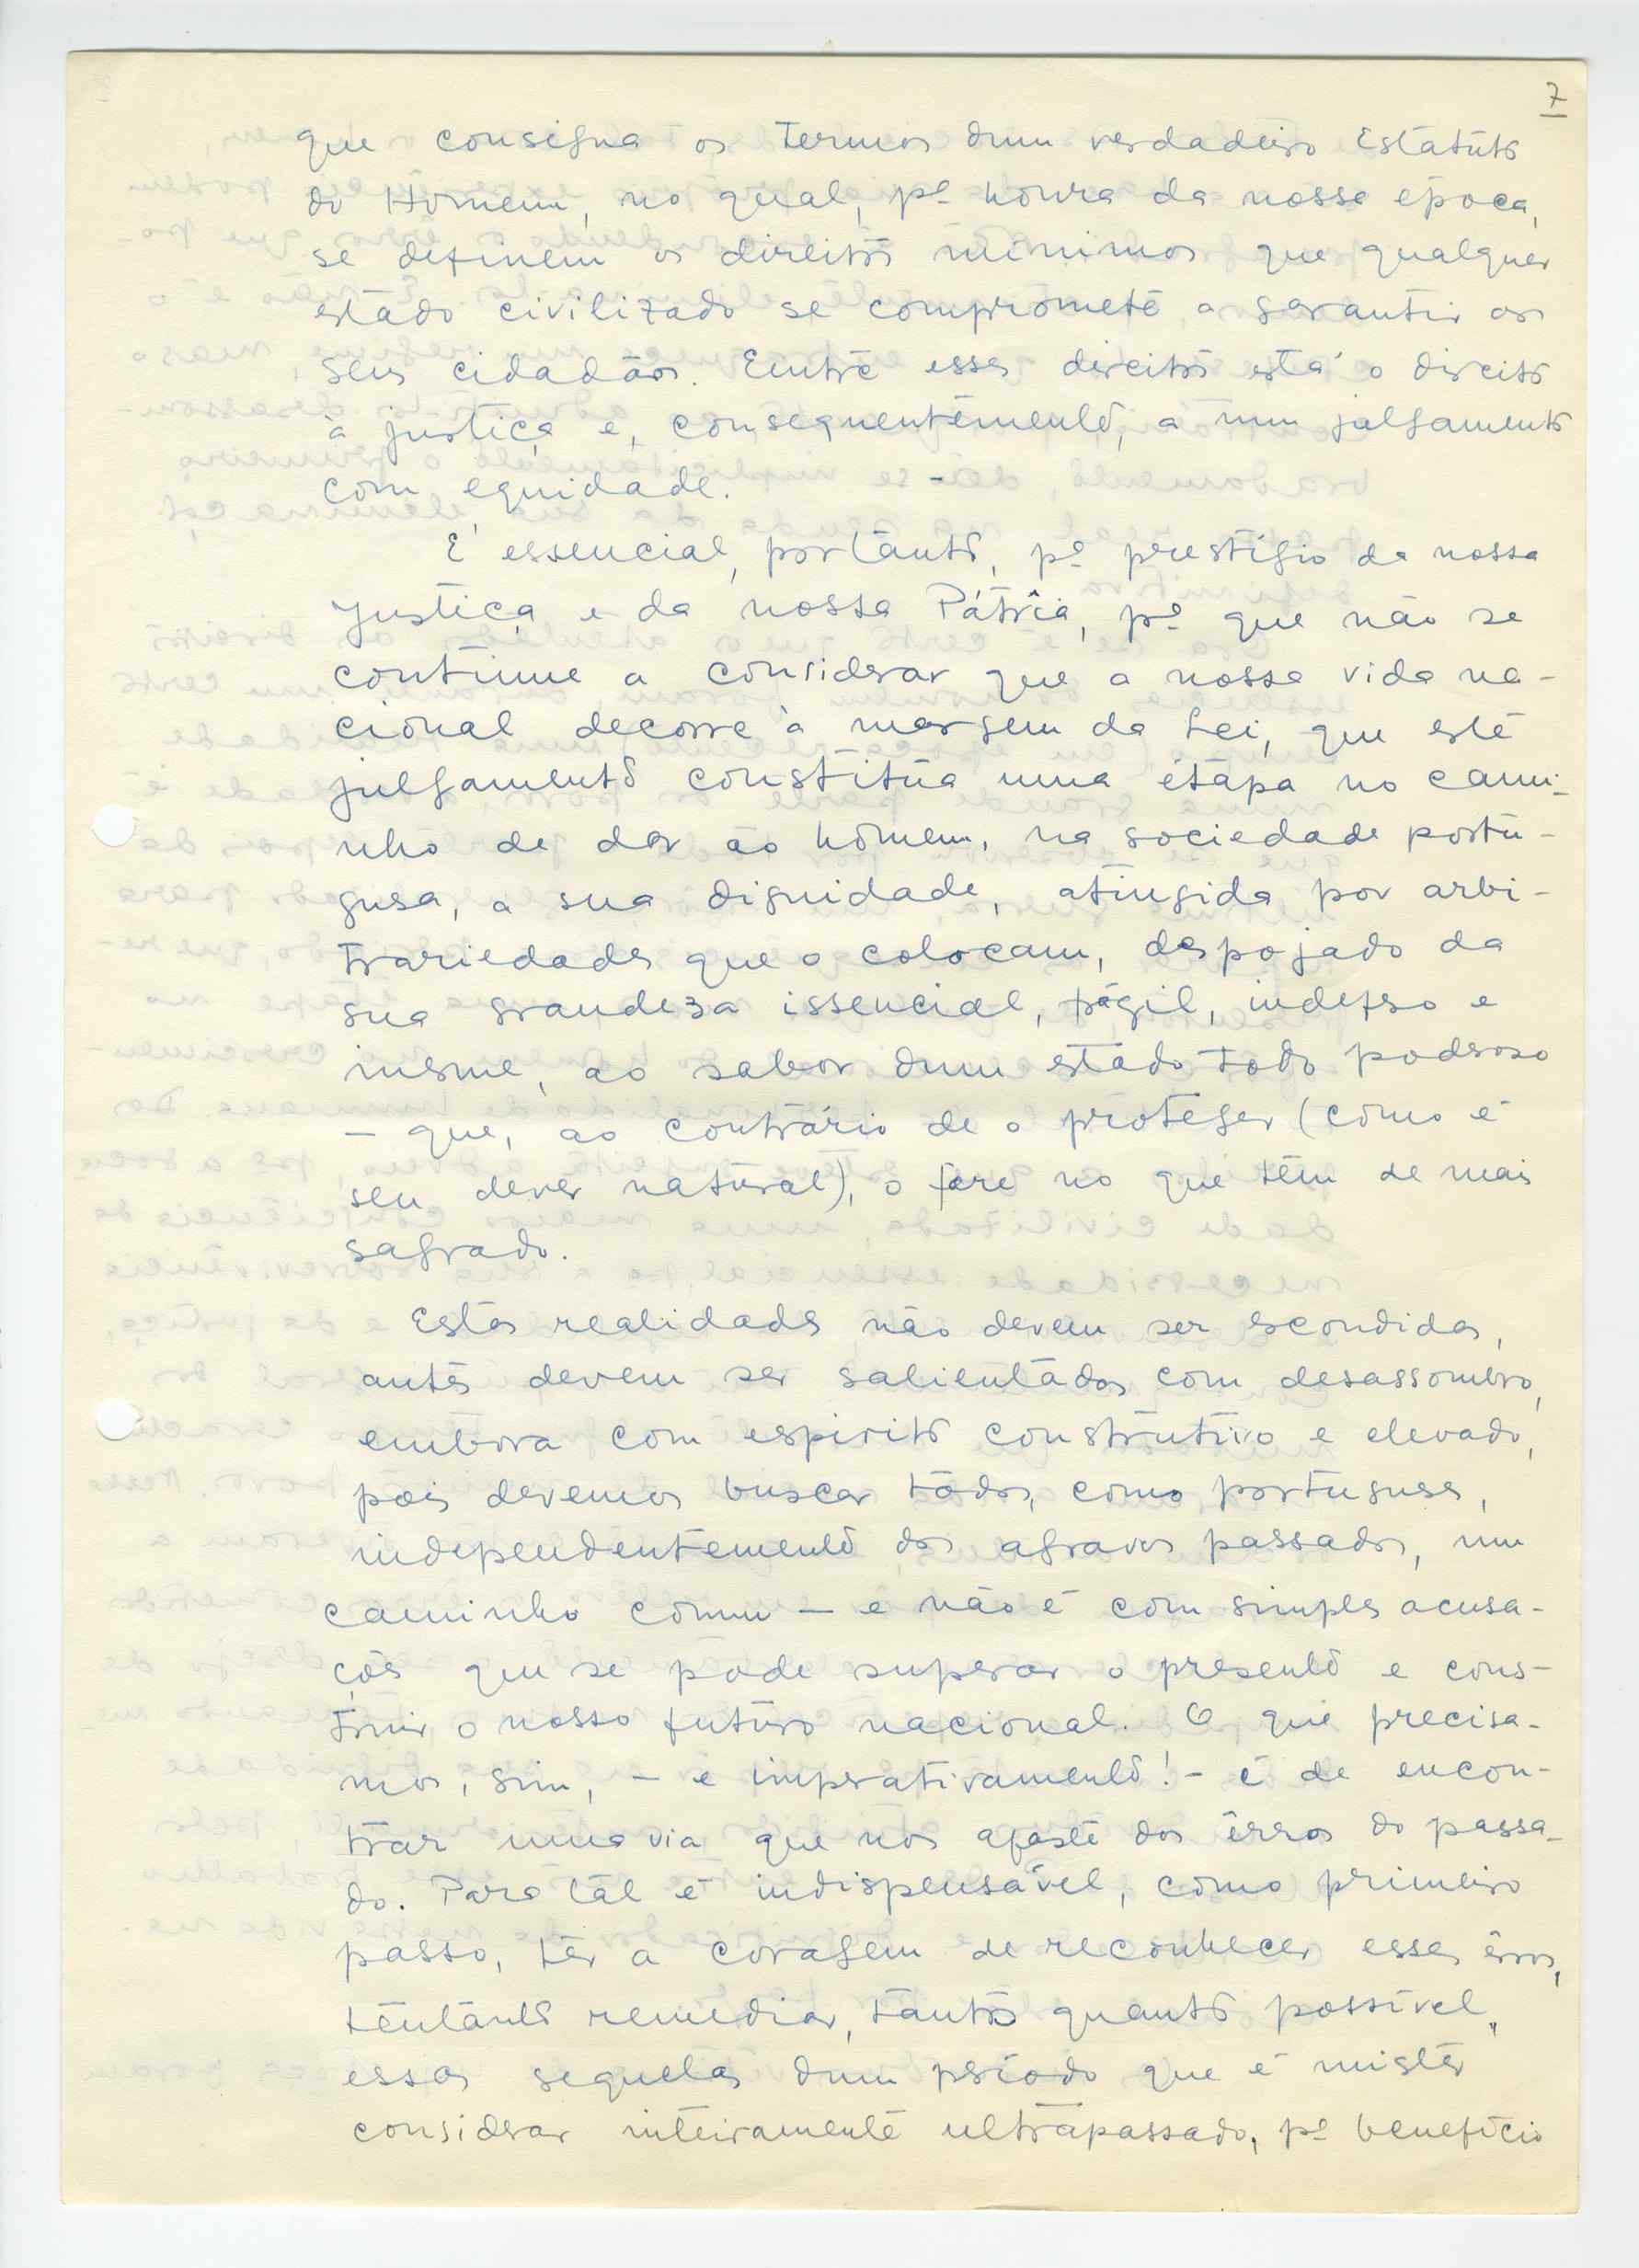 7
que consigna os termos dum verdadeiro Estatuto
do Homem, no qual, pª honra da nossa época,
se definem os direitos mínimos que qualquer
estado civilizado se compromete a garantir aos
seus cidadãos. Entre esses direitos está o direito
à justiça e, consequentemente, a um julgamento
com equidade.
É essencial, portanto, pª prestígio da nossa
Justiça e da nossa Pátria, pª que não se
continue a considerar que a nossa vida na-
cional decorre à margem da Lei, que este
julgamento constitua uma etapa no cami-
nho de dar ao homem, na sociedade portu-
guesa, a sua dignidade, atingida por arbi-
trariedades que o colocam, despojado da
sua grandeza issencial, frágil, indefeso e
inerme, ao sabor dum estado todo poderoso
– que, ao contrário de o proteger (como é
seu dever natural), o fere no que têm de mais
sagrado.
Estas realidades não devem ser escondidas,
antes devem ser salientadas com desassombro,
embora com espírito construtivo e elevado,
pois devemos buscar todos, como portugueses,
independentemente dos agravos passados, um
caminho comum – e não é com simples acusa-
ções que se pode superar o presente e cons-
truir o nosso futuro nacional. O que precisa-
mos, sim, – e imperativamente! – é de encon-
trar uma via que nos afaste dos êrros do passa-
do. Para tal é indispensável, como primeiro
passo, ter a coragem de reconhecer esses êrros,
tentando remediar, tanto quanto possível,
essas sequelas dum período que é mister
considerar inteiramente ultrapassado, pª benefício